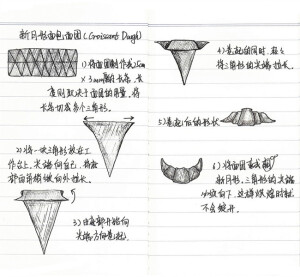 新月形面包面团(Croissant Dough)
1)将面团制作成25cm
×3mm厚的长条,长
度则取决于面团的用量,将
长条切成多个三角形。
2)将一块三角形放在工
作台上,尖端向自己,将底
部两角稍微向外拉长。
3)由底部开始向
尖端方向卷起。
4)卷起的同时,轻轻
将三角形的尖端拉长。
5)卷起后的形状
6)将面团弯成
新月形,三角形的尖端
必须向下,这样烘焙时就
不会绽开。